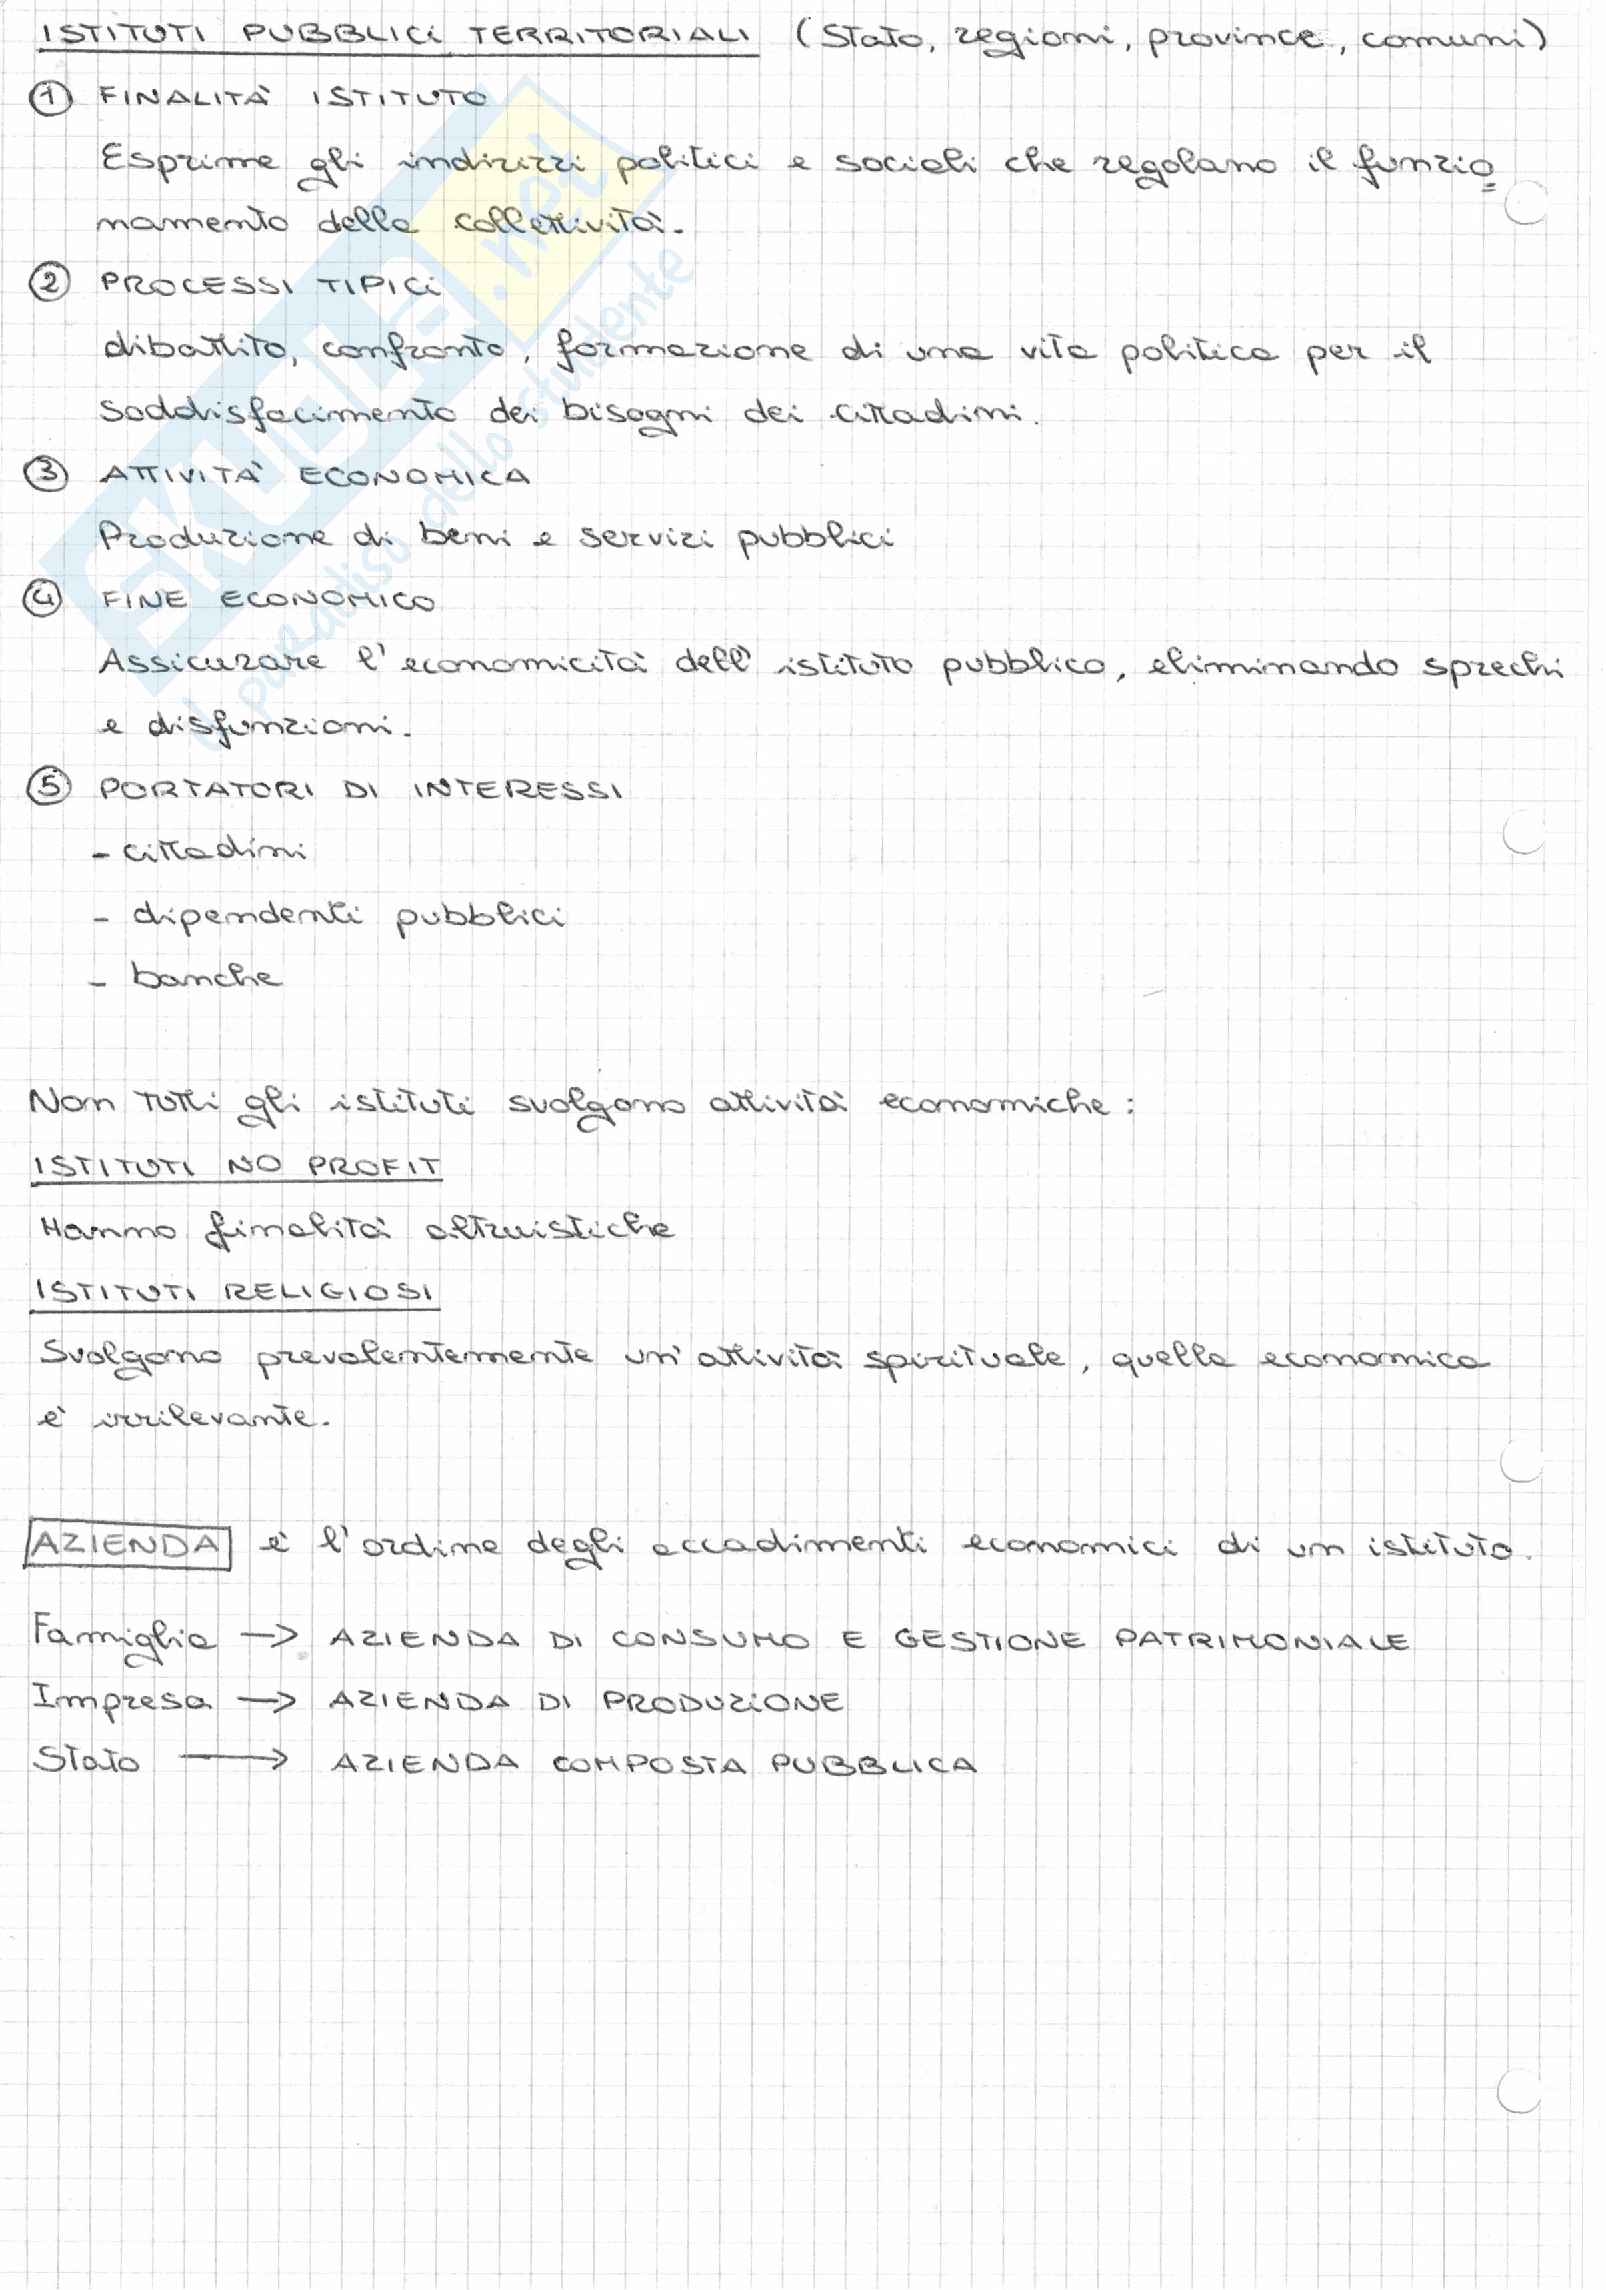 ISTITUTI PUBBLICI TERRITORIALI (Stato, regioni, province, comuni)
① FINALITÀ ISTITUTO
Esprime gli indirizzi politici e sociali che regolano il funzio
namento della collettività.
② PROCESSI TIPICI
dibattito, confronto, formazione di una vita politica per il
soddisfacimento dei bisogni dei cittadini.
③ ATTIVITÀ ECONOMICA
Produzione di beni e servizi pubblici
④ FINE ECONOMICO
Assicurare l'economicità dell'istituto pubblico, eliminando sprechi
e disfunzioni.
⑤ PORTATORI DI INTERESSI
- cittadini
- dipendenti pubblici
- banche
Non tutti gli istituti svolgono attività economiche:
ISTITUTI NO PROFIT
Hanno finalità altruistiche
ISTITUTI RELIGIOSI
Svolgono prevalentemente un'attività spirituale, quella economica
è irrilevante.
AZIENDA è l'ordine degli accadimenti economici di un istituto.
Famiglia → AZIENDA DI CONSUMO E GESTIONE PATRIMONIALE
Impresa → AZIENDA DI PRODUZIONE
Stato → AZIENDA COMPOSTA PUBBLICA
SKUOLA.net
il paradiso dello studente